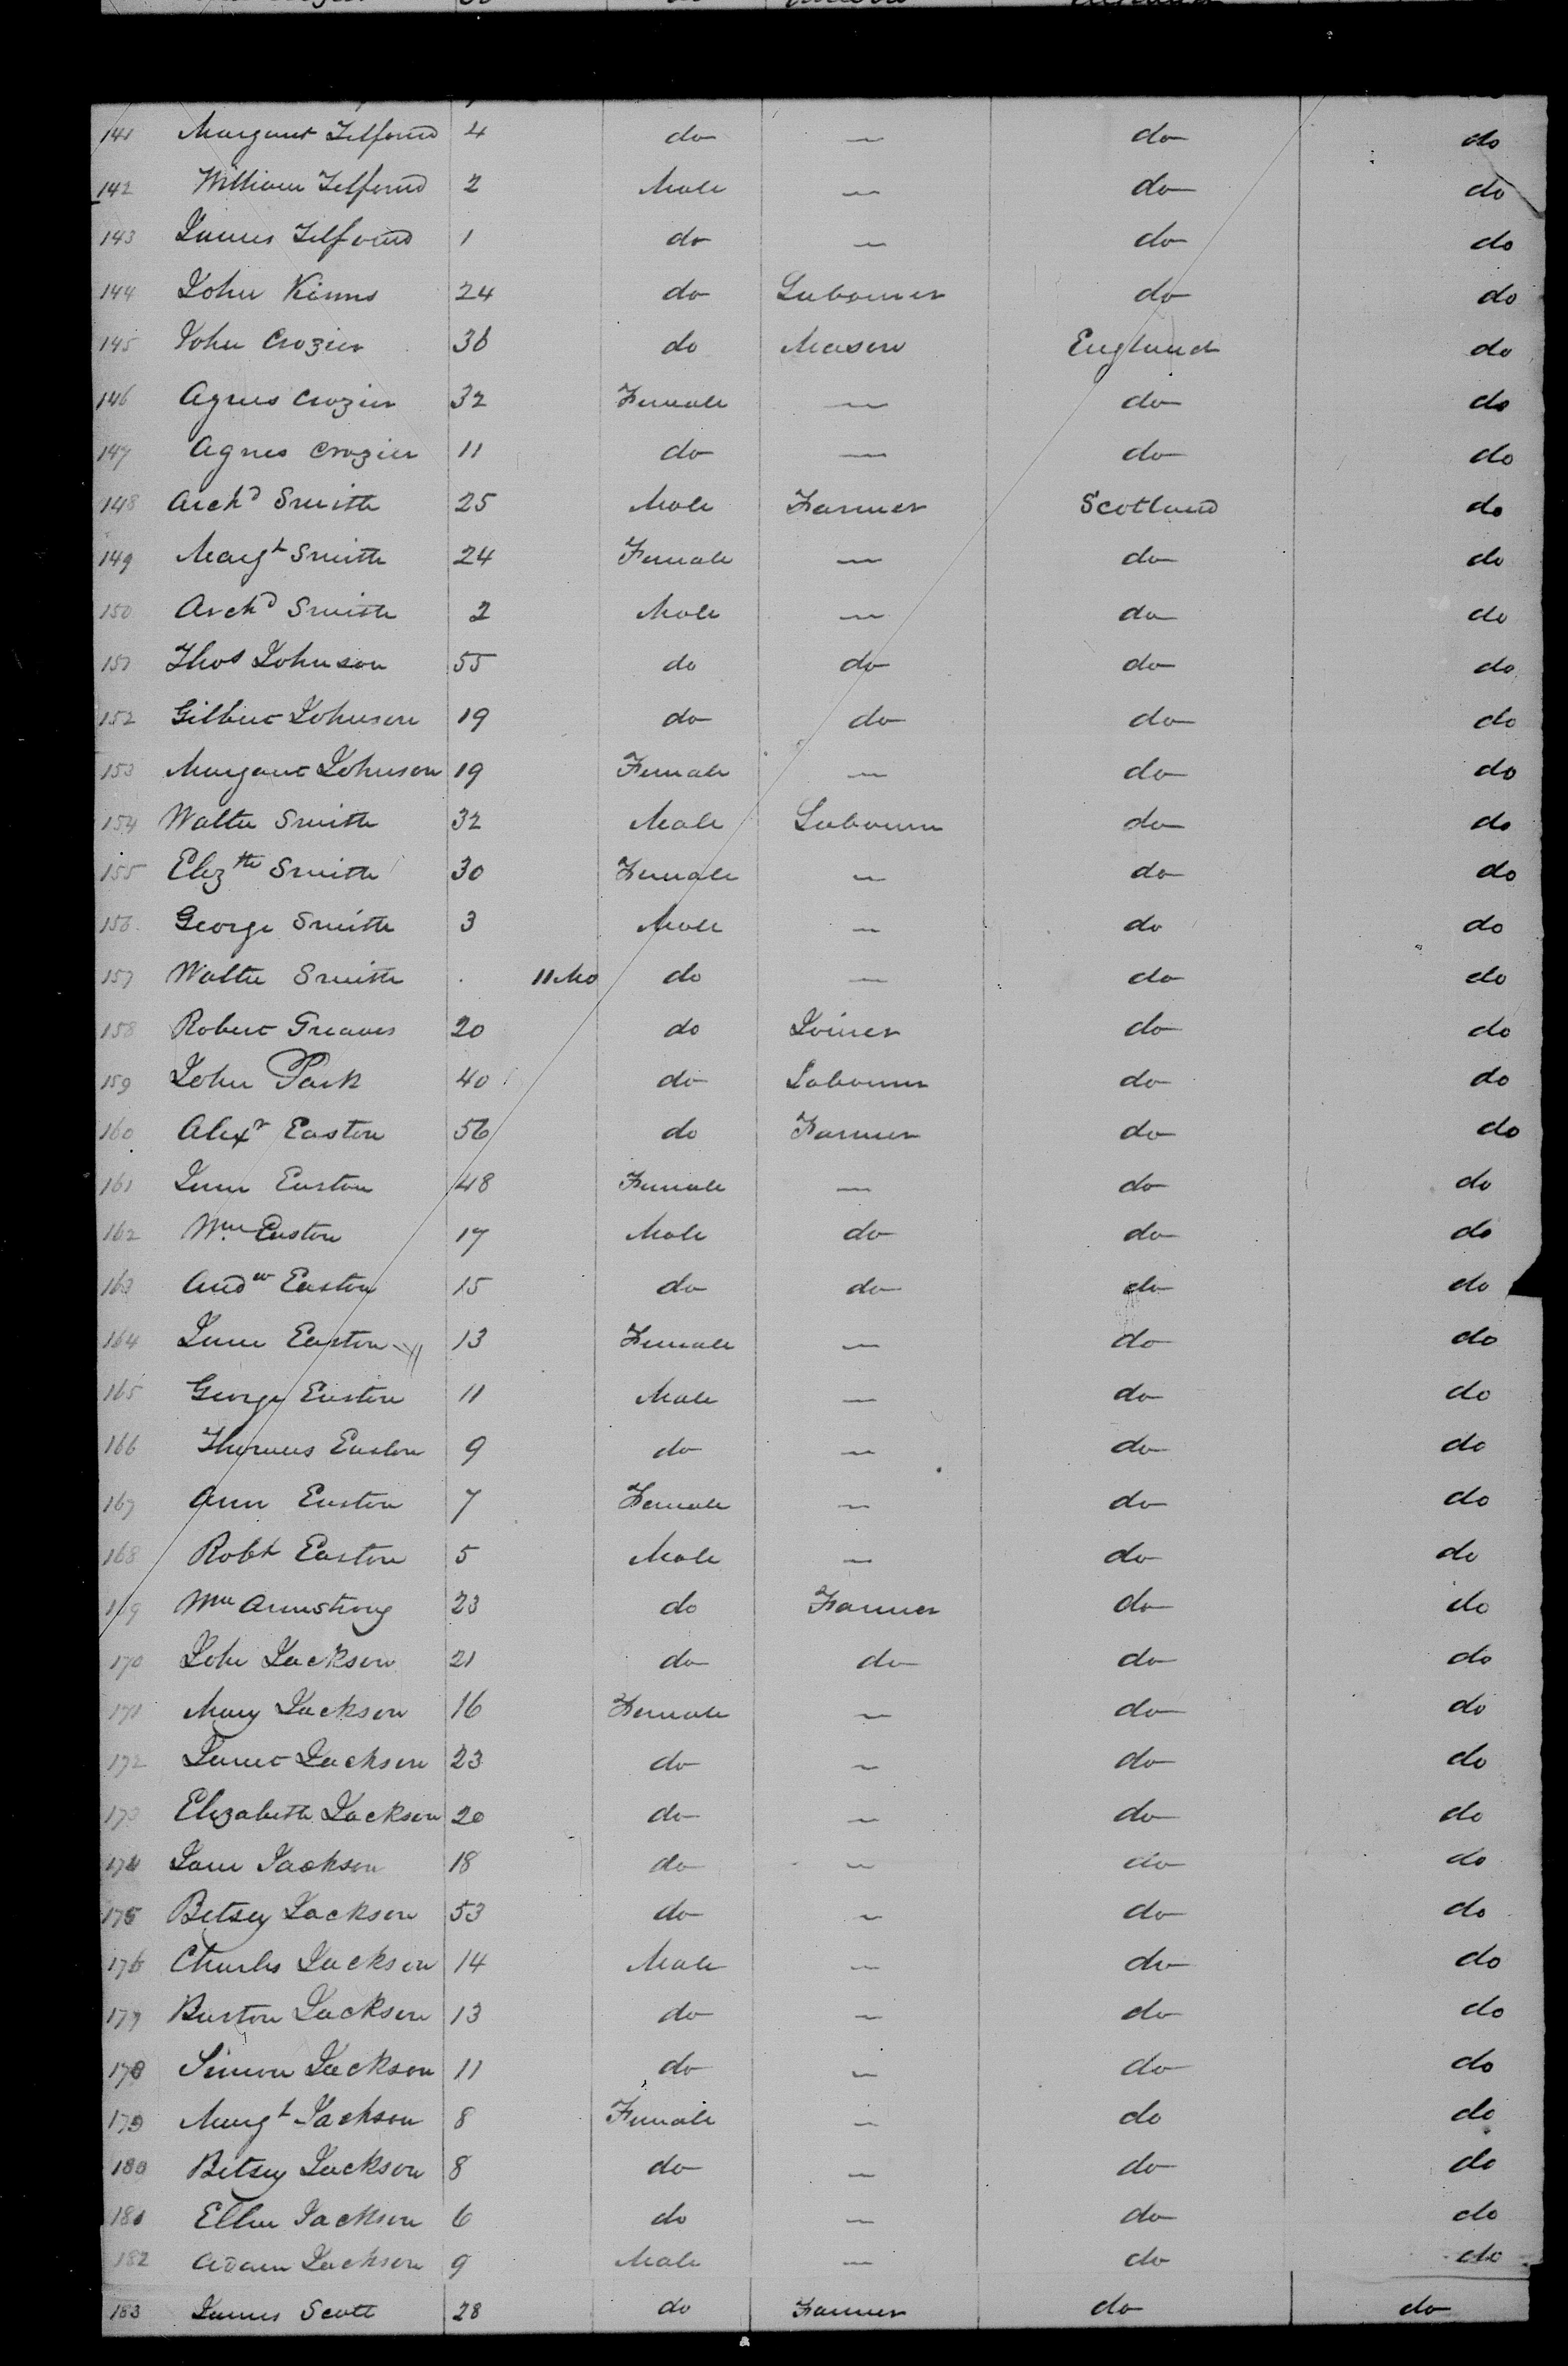 141 Margaret Telford 4 do — do do
142 William Telford 2 Male — do do
143 James Telford 1 do — do do
144 John Kinns 24 do Labourer do do
145 John Crozier 36 do Mason England do
146 Agnes Crozier 32 Female — do do
147 Agnes Crozier 11 do — do do
148 Archd Smith 25 Male Farmer Scotland do
149 Margt Smith 24 Female — do do
150 Archd Smith 2 Male — do do
151 Thos Johnson 55 do do do do
152 Gilbert Johnson 19 do do do do
153 Margaret Johnson 19 Female — do do
154 Walter Smith 32 Male Labourer do do
155 Elizth Smith 30 Female — do do
156 George Smith 3 Male — do do
157 Walter Smith 11 Mo do — do do
158 Robert Greaves 20 do Joiner do do
159 John Park 40 do Labourer do do
160 Alexr Easton 56 do Farmer do do
161 Jean Easton 48 Female — do do
162 Wm Easton 17 Male do do do
163 Andw Easton 15 do do do do
164 Jean Easton 13 Female — do do
165 George Easton 11 Male — do do
166 Thomas Easton 9 do — do do
167 Ann Easton 7 Female — do do
168 Robt Easton 5 Male — do do
169 Wm Armstrong 23 do Farmer do do
170 John Jackson 21 do do do do
171 Mary Jackson 16 Female — do do
172 Janet Jackson 23 do — do do
173 Elizabeth Jackson 20 do — do do
174 Jane Jackson 18 do — do do
175 Betsey Jackson 53 do — do do
176 Charles Jackson 14 Male — do do
177 Burton Jackson 13 do — do do
178 Simon Jackson 11 do — do do
179 Margt Jackson 8 Female — do do
180 Betsey Jackson 8 do — do do
181 Ellen Jackson 6 do — do do
182 Adam Jackson 9 Male — do do
183 James Scott 28 do Farmer do do